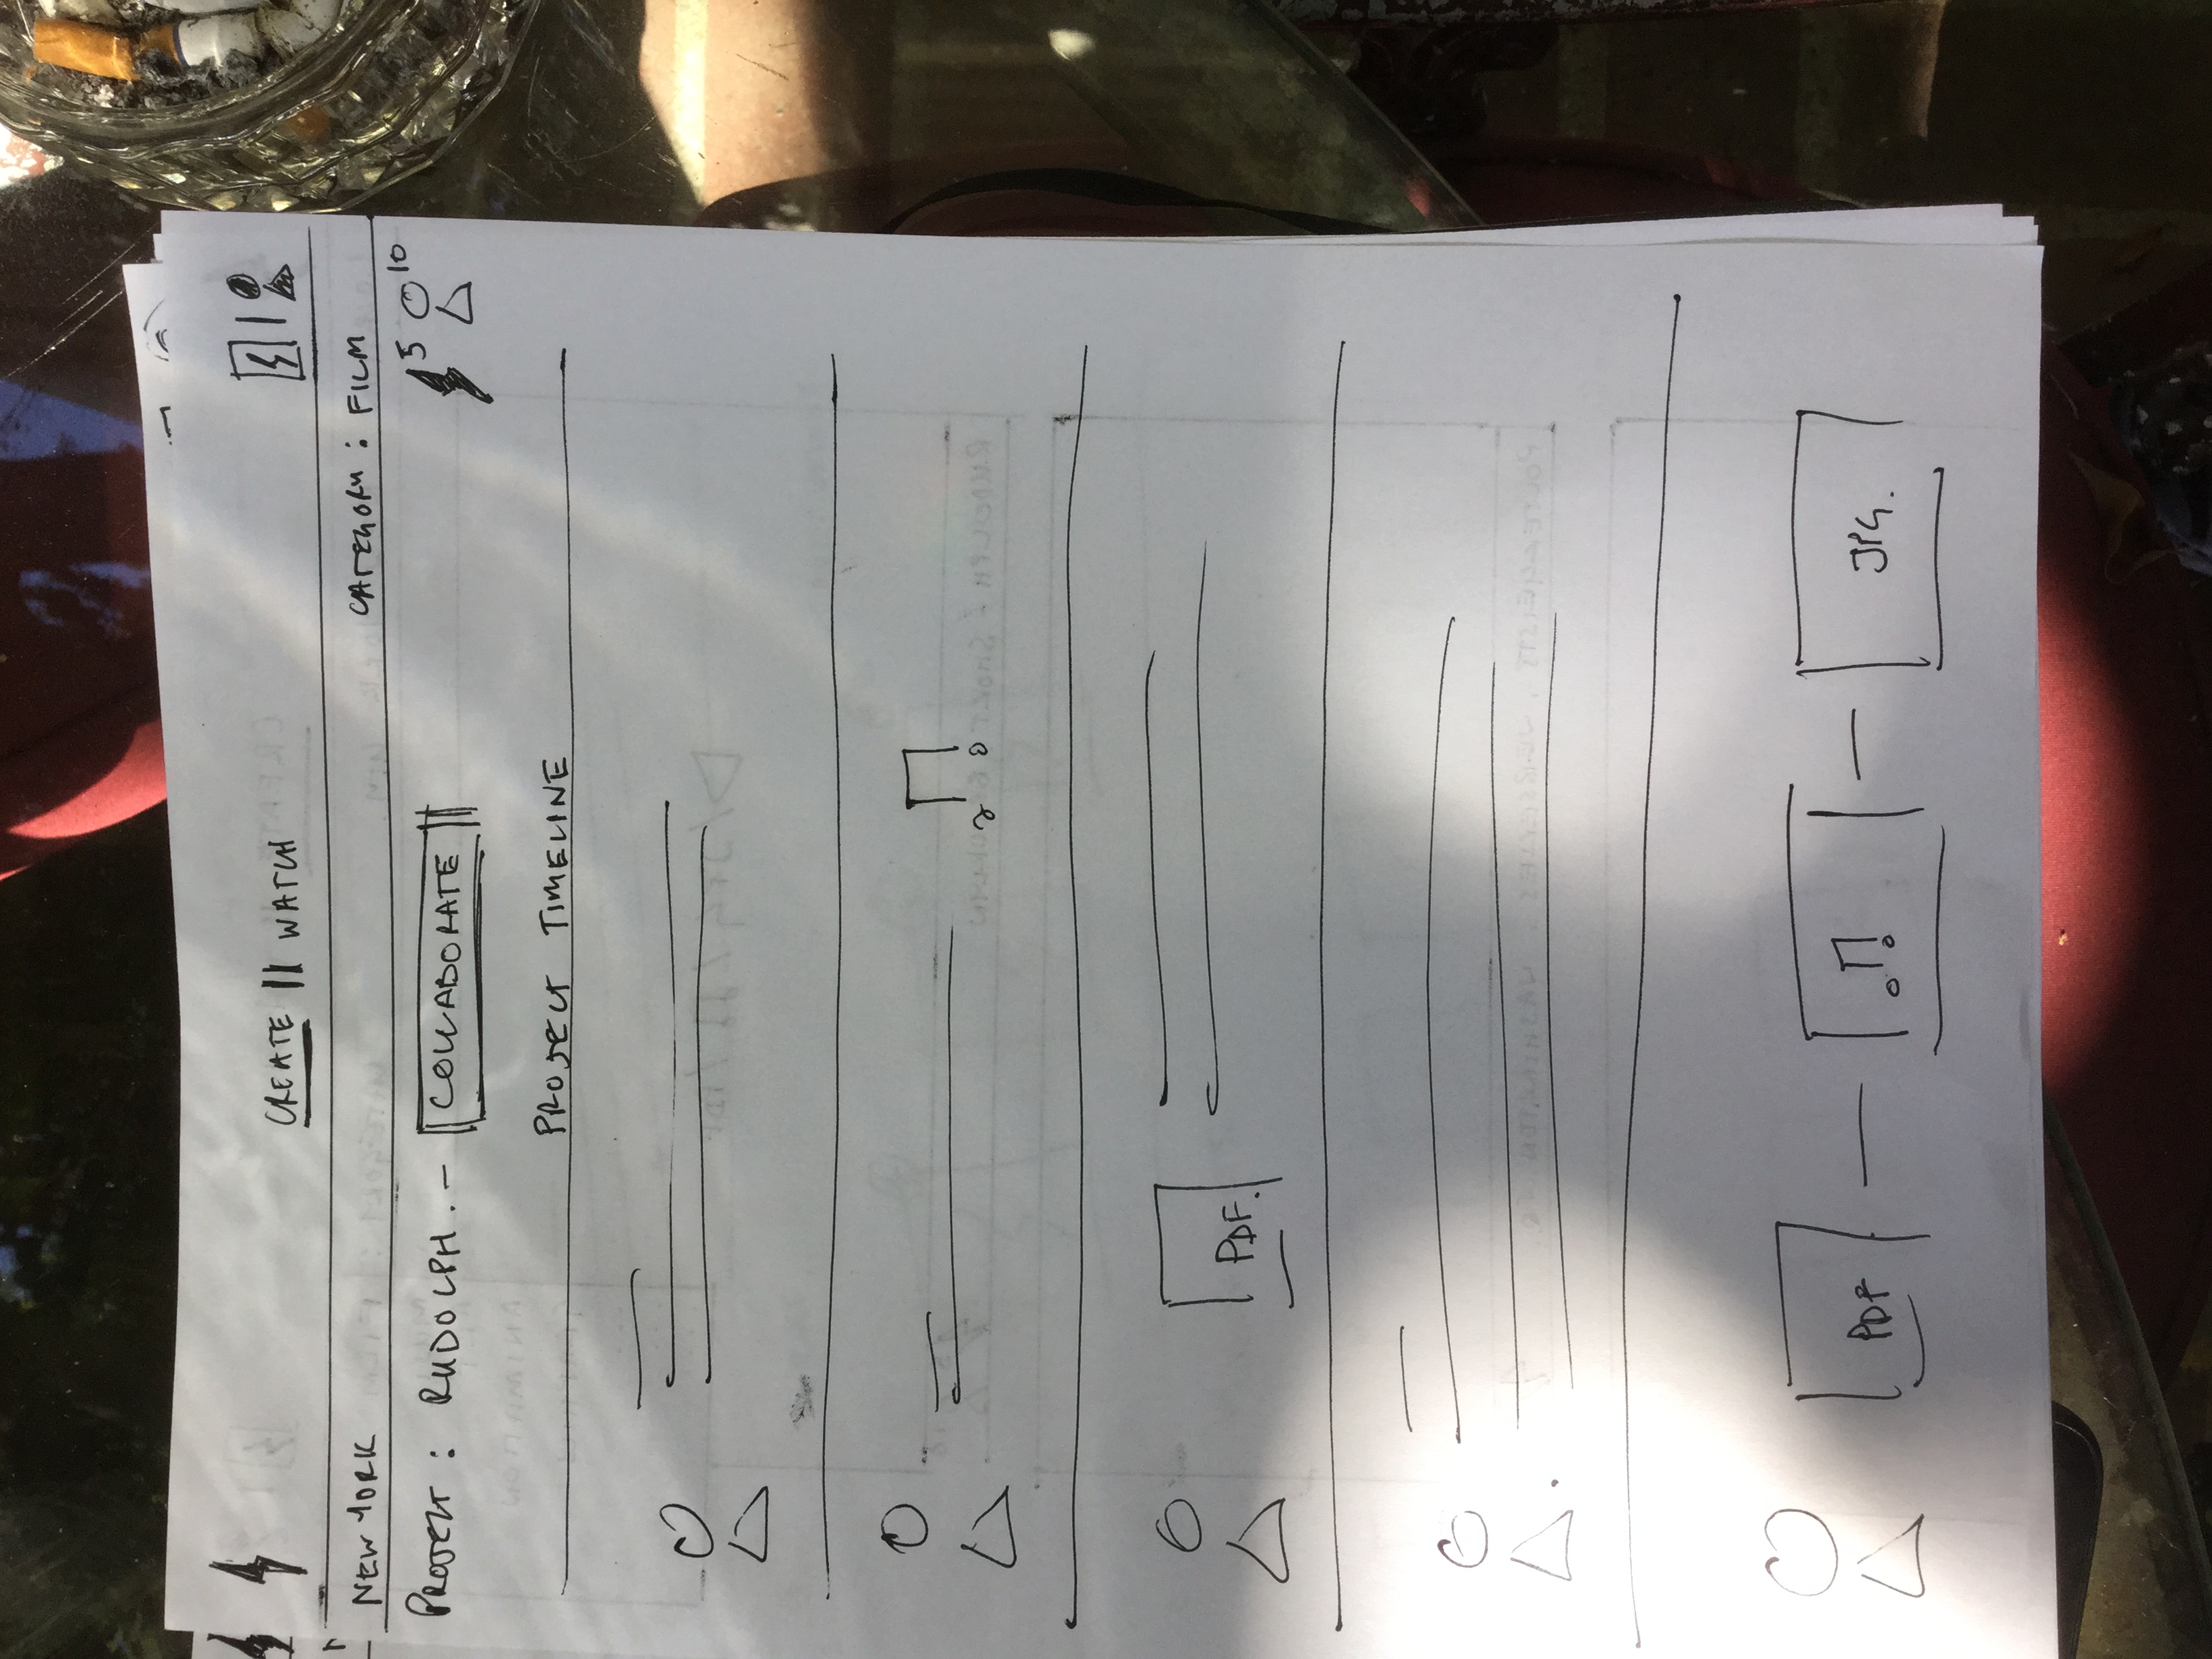 CREATE || WATCH
NEW YORK CATEGORY : FILM
PROJECT : RUDOLPH . - COLLABORATE 5 10
PROJECT TIMELINE
PDF.
PDF JPG.